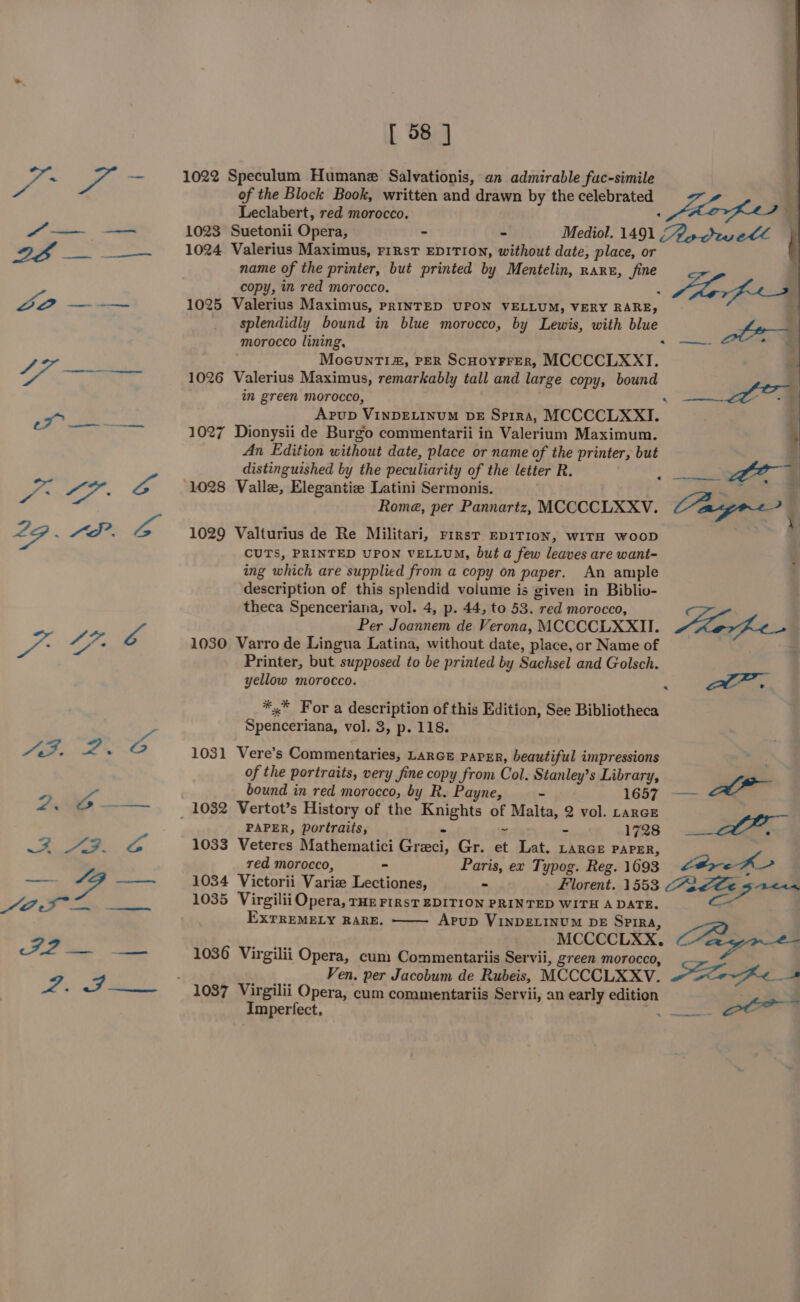 [ 58 ]
7. 7 — 1022 Speculum Humanæ Salvationis, an admirable fac-simile
of the Block Book, written and drawn by the celebrated
Leclabert, red morocco. Thorpe
1023 Suetonii Opera, - - Mediol. 1491 Rodwell
26 — — 1024 Valerius Maximus, FIRST EDITION, without date, place, or
name of the printer, but printed by Mentelin, RARE, fine
copy, in red morocco. Thorpe
1025 Valerius Maximus, PRINTED UPON VELLUM, VERY RARE,
splendidly bound in blue morocco, by Lewis, with blue
morocco lining.
17 — — MOGUNTIÆ, PER SCHOYFFER, MCCCCLXXI.
1026 Valerius Maximus, remarkably tall and large copy, bound
in green morocco,
APUD VINDELINUM DE SPIRA, MCCCCLXXI.
1027 Dionysii de Burgo commentarii in Valerium Maximum.
An Edition without date, place or name of the printer, but
distinguished by the peculiarity of the letter R.
7. 17. 6 1028 Vallæ, Elegantiæ Latini Sermonis.
Romæ, per Pannartz, MCCCCLXXV. Payne
29. 18. 6 1029 Valturius de Re Militari, FIRST EDITION, WITH WOOD
CUTS, PRINTED UPON VELLUM, but a few leaves are want-
ing which are supplied from a copy on paper. An ample
description of this splendid volume is given in Biblio-
theca Spenceriana, vol. 4, p. 44, to 53. red morocco,
Per Joannem de Verona, MCCCCLXXII. Thorpe
7. 17. 6 1030 Varro de Lingua Latina, without date, place, or Name of
Printer, but supposed to be printed by Sachsel and Golsch.
yellow morocco.
*** For a description of this Edition, See Bibliotheca
Spenceriana, vol. 3, p. 118.
13. 2. 6 1031 Vere's Commentaries, LARGE PAPER, beautiful impressions
of the portraits, very fine copy from Col. Stanley's Library,
bound in red morocco, by R. Payne, - 1657
2. 6 — 1032 Vertot's History of the Knights of Malta, 2 vol. LARGE
PAPER, portraits, - - - 1728
3. 13. 6 1033 Veteres Mathematici Græci, Gr. et Lat. LARGE PAPER,
red morocco, - Paris, ex Typog. Reg. 1693
— 19 — 1034 Victorii Variæ Lectiones, - Florent. 1553
105 — — 1035 Virgilii Opera, THE FIRST EDITION PRINTED WITH A DATE.
EXTREMELY RARE. —— APUD VINDELINUM DE SPIRA,
MCCCCLXX. Payne
32 — — 1036 Virgilii Opera, cum Commentariis Servii, green morocco,
Ven. per Jacobum de Rubeis, MCCCCLXXV. Thorpe
2. 3 — 1037 Virgilii Opera, cum commentariis Servii, an early edition
Imperfect.